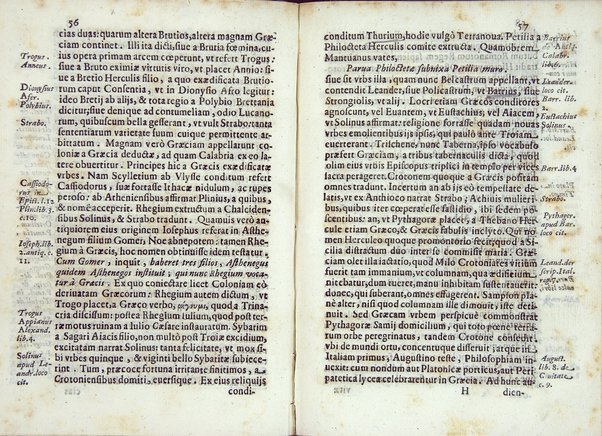 56
cias duas: quarum altera Brutios, altera magnam Græ-
ciam continet. Illi ita dicti, siue a Brutia fœmina, cu-
ius opera primam arcem cœperunt, vt refert Trogus:
siue a Bruto eximiæ virtutis viro, vt placet Annio: si-
ue a Bretio Herculis filio, a quo exædificatam Brutio-
rum caput Consentia, vt in Dionysio Afro legitur:
ideo Bretij ab alijs, & tota regio a Polybio Brettania
dicitur, siue denique ad contumeliam, odio Lucano-
rum, quibuscum bella gesserant, vt vult Strabo: tanta
sententiarum varietate suum cuique permittens ar-
bitratum. Magnam verò Græciam appellarunt co-
loniæ a Græcia deductæ, ad quam Calabria ex eo la-
tere obuertitur. Principes hic a Græcis exædificatæ
vrbes. Nam Scylletium ab Vlysse conditum refert
Cassiodorus, suæ fortasse Ithacæ nidulum, ac rupes
perosus: ab Atheniensibus affirmat Plinius, a quibus,
& nomen acceperit. Rhegium extructum a Chalciden-
sibus Solinus, & Strabo tradunt. Quamuis verò an-
tiquiorem eius originem Iosephus referat in Asthe-
negum filium Gomer, Noe abnepotem: tamen Rhe-
gium a Græcis, hoc nomen obtinuisse idem testatur.
Cum Gomer, inquit, haberet tres filios, Asthenegus
quidem Asthenegos instituit, qui nunc Rhegium voca-
tur à Græcis. Ex quo coniectare licet Coloniam eò
deriuatam Græcorum: Rhegium autem dictum, vt
Trogo placet, a Græco verbo, quod a Trina-
cria discissum: postea Rhegium Iulium, quod post ter-
ræmotus ruinam a Iulio Cæsare instauratum. Sybarim
a Sagari Aiacis filio, non multò post Troiæ excidium,
excitatam narrat Solinus tanta felicitate, vt mox si-
bi vrbes quinque, & viginti bello Sybaritæ subiece-
rint. Tum, præcoce fortuna irritante finitimos, a
Crotoniensibus domiti, euersique. Ex eius reliquijs
condi-
Trogus.
Anneus.
Dionysius
Afer.
Polybius.
Strabo.
Cassiodo-
rus in
Epist. l.12
Plin. lib. 3.
Ioseph. lib.
2. antiq. c.
11.
Trogus
Appianus
Alexand.
lib. 4.
Solinus
apud Le-
andr. loco
cit.
57
conditum Thurium, hodie vulgò Terranoua. Petilia a
Philocteta Herculis comite extructa. Quamobrem
Mantuanus vates.
Parua Philoctetæ subnixa Petilia muro.
siue sit vrbs illa, quam nunc Belicastrum appellant, vt
contendit Leander, siue Policastrum, vt Barrius, siue
Strongilis, vt alij. Locri etiam Græcos conditores
agnoscunt, vel Euantem, vt Eustachius, vel Aiacem,
vt Solinus affirmat: religione forrasse quadam nouas
vrbes emolientibus ijs ipsis, qui paulò ante Troiam
euerterant. Trischene, nunc Tauerna, ipso vocabulo
præsert Græciam, a tribus tabernaculis dicta, quòd
olim eius vrbis Episcopus triplici in templo per vices
sacra peragebat. Crotonem quoque a Græcis positam
omnes tradunt. Incertum an ab ijs eò tempestate de-
latis, vt ex Antiocho narrat Strabo, Achiuis mulieri-
bus, quibus iter cœperate fastidio, ibi sedem po-
scentibus: an, vt Pythagoræ placet, a Thebano Her-
cule etiam Græco, & Græcis fabulis inclyto. Qui no-
men Herculeo quoque promontorio fecit, quod a Si-
cilia distractum duo inter se committit maria. Græ-
ciam olet illa iactatio, quòd Milo Crotoniates viribus
fuerit tam immanium, vt columnam, quæ ædificium,
nitebatur, dum rueret, manu inhibitam sustentauerit;
donec, qui suberant, omnes effugerent. Sampson pla-
nè alter, nisi quòd columnam ille dimouit, iste deti-
nuit. Sed Græcam vrbem perspicuè commonstrat
Pythagoræ Samij domicilium, qui toto penè terra-
rum orbe peregrinatus, tandem Crotone consedit,
vbi de mundi ortu, concentuque differuit: atque in
Italiam primus, Augustino teste, Philosophiam in-
uexit: cum nondum aut Platonicæ porticus, aut Peri-
patetici lycea celebrarentur in Græcia. Ad hunc au-
H
dien-
Barrius
de Antiq.
Calabr.
lib. 6.
Leander.
loco cit.
Barr. lib.
2.
Eustachius
Solinus.
Barr. lib. 4
Strabo.
Pythager.
apud Bar.
loco cit.
Leand. de-
scrip. Ital.
August.
lib. 8. de
Ciuitate
c. 9.